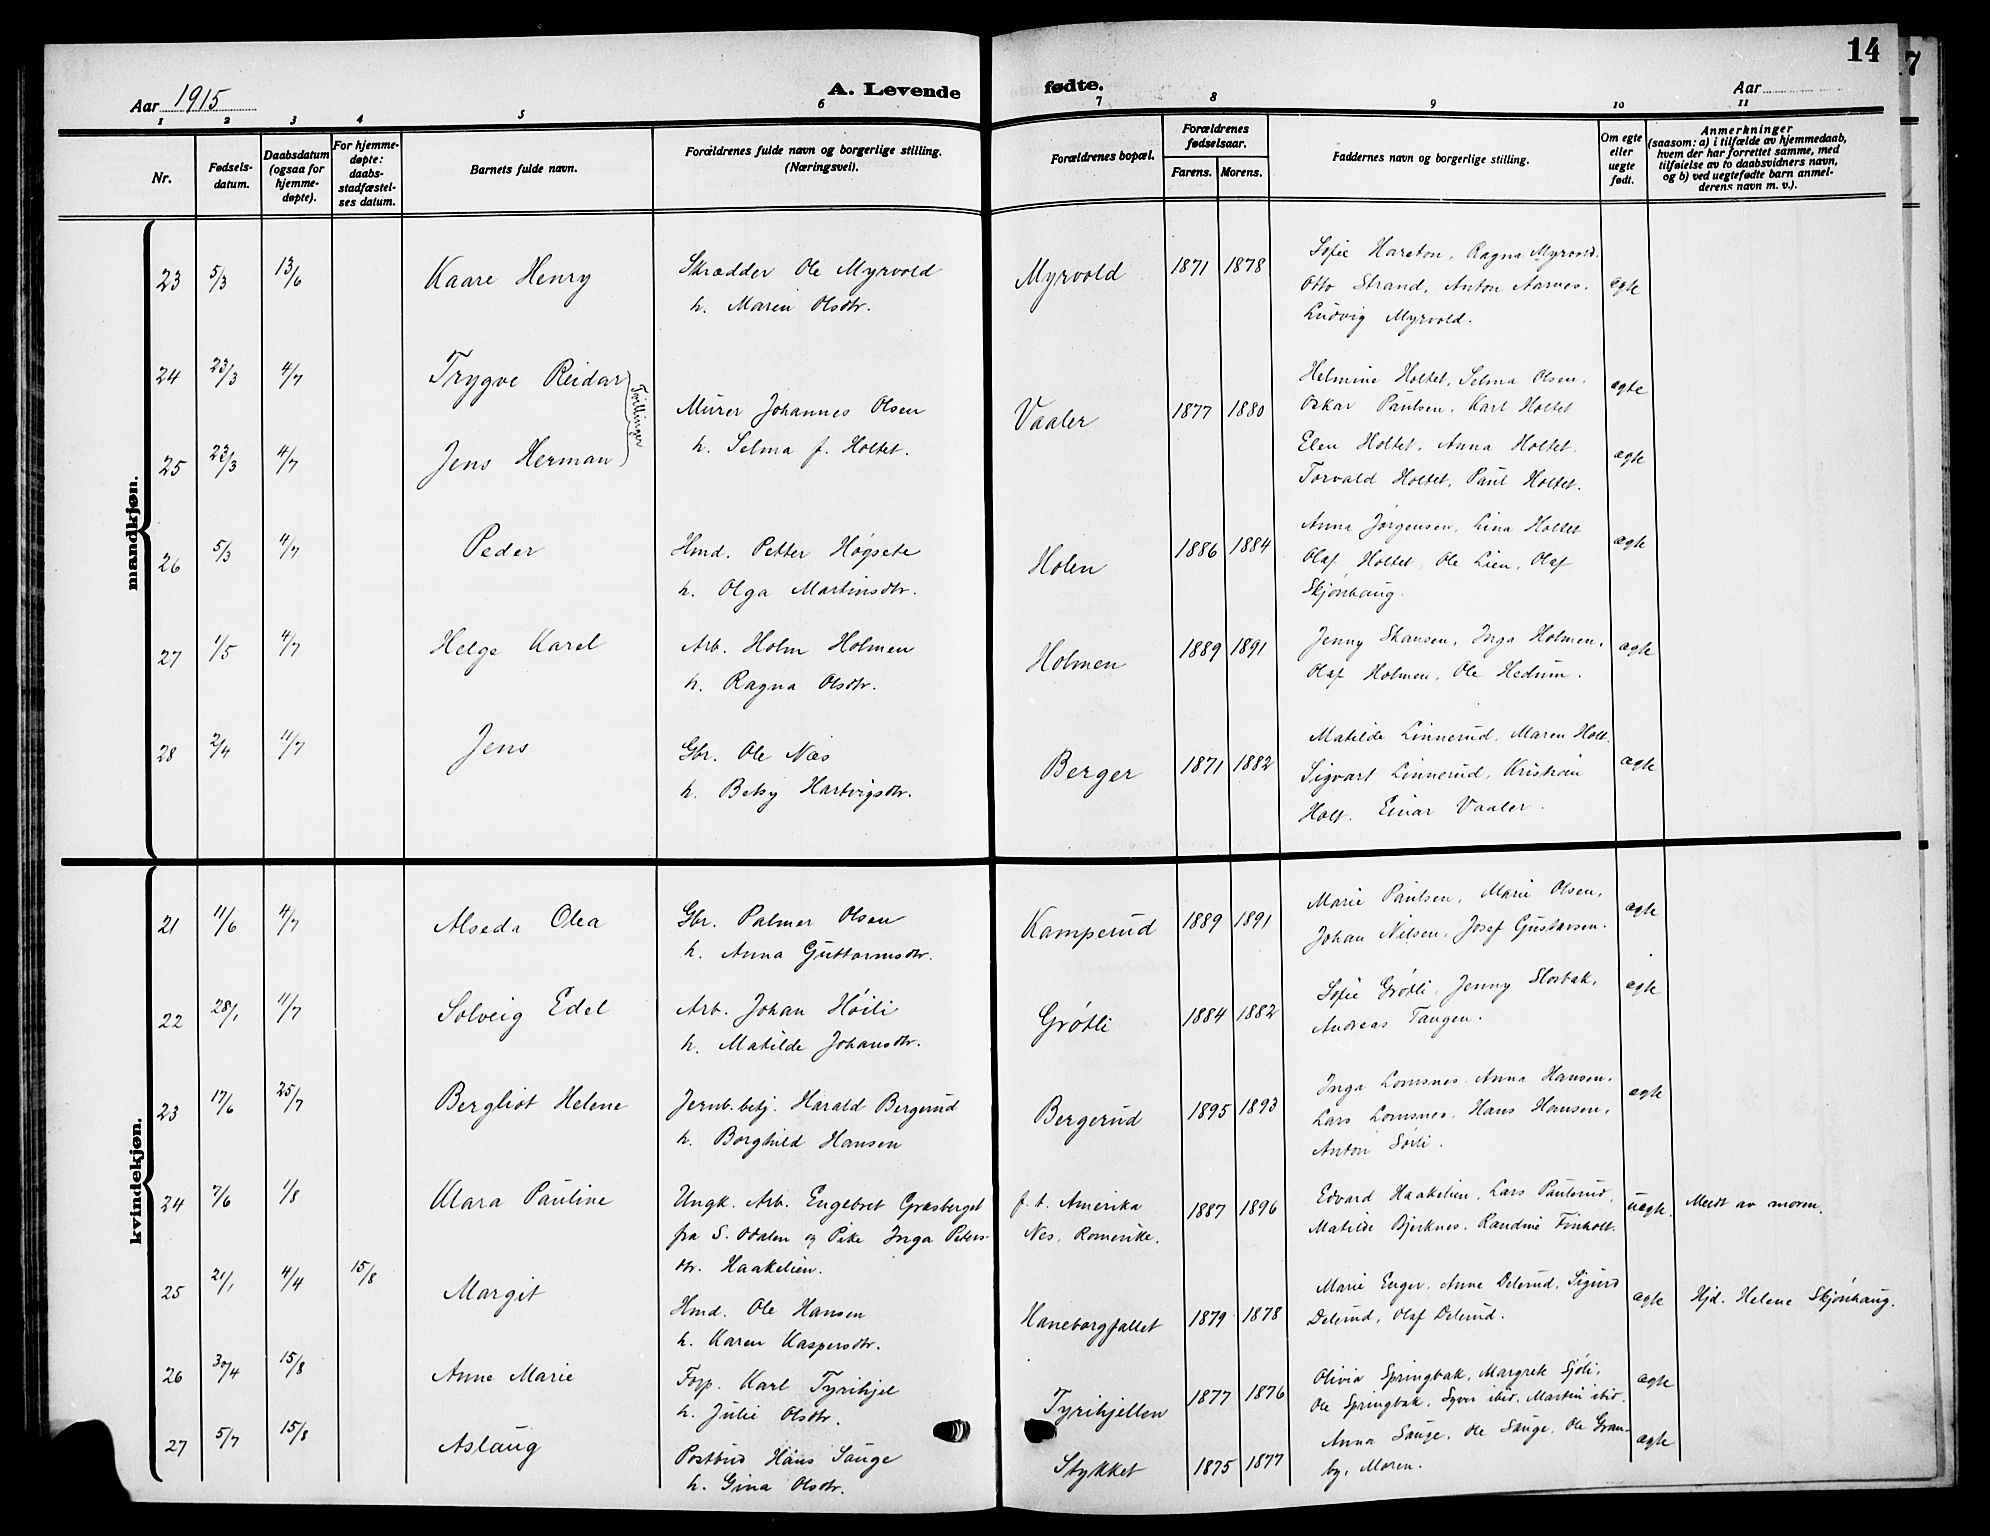 14
7
Aar 1915
A. Levende fødte.
Aar
1 2 3 4 5 6 7 8 9 10 11
Nr.
Fødsels-
datum.
Daabsdatum
(ogsaa for
hjemme-
døpte).
For hjemme-
døpte:
daabs-
stadfæstel-
ses datum.
Barnets fulde navn.
Forældrenes fulde navn og borgerlige stilling.
(Næringsvei).
Forældrenes bopæl.
Forældrenes
fødselsaar.
Farens. Morens.
Faddernes navn og borgerlige stilling.
Om egte
eller
uegte
født.
Anmerkninger
(saasom: a) i tilfælde av hjemmedaab,
hvem der har forrettet samme, med
tilføielse av to daabsvidners navn,
og b) ved uegtefødte barn anmel-
derens navn m. v.).
mandkjøn.
23 5/3 13/6 Kaare Henry Skrædder Ole Myrvold Myrvold 1871 1878 Sofie Hareton, Ragna Myrvold. ægte
h. Maren Olsdtr. Otto Strand, Anton Aarnes.
Ludvig Myrvold.
24 23/3 4/7 Trygve Reidar Tvillinger Murer Johannes Olsen Vaaler 1877 1880 Helmine Holtet, Selma Olsen. ægte
h. Selma f. Holtet. Oskar Paulsen, Karl Holtet
25 23/3 4/7 Jens Herman Elen Holtet, Anna Holtet. ægte
Torvald Holtet, Paul Holtet.
26 5/3 4/7 Peder Hmd. Petter Høgsete Holen 1886 1884 Anna Jørgensen, Lina Holtet ægte
h. Olga Martinsdtr. Olaf Holtet, Ole Lien, Olaf
Skjønhaug.
27 1/5 4/7 Helge Karel Arb. Holm Holmen Holmen 1889 1891 Jenny Skansen, Inga Holmen. ægte
h. Ragna Olsdtr. Olaf Holmen, Ole Hedum.
28 2/4 11/7 Jens Gbr. Ole Næs Berger 1871 1882 Matilde Linnerud, Maren Holt. ægte
h. Betsy Hartvigsdtr. Sigvart Linnerud, Kristian
Holt. Einar Vaaler.
kvindekjøn.
21 11/6 4/7 Alseda Olea Gbr. Palmer Olsen Kamperud 1889 1891 Marie Paulsen, Marie Olsen, ægte
h. Anna Guttormsdtr. Johan Nilsen, Josef Gustavsen.
22 28/1 11/7 Solveig Edel Arb. Johan Høili Grøtli 1884 1882 Sofie Grøtli, Jenny Slorbak, ægte
h. Matilde Johansdtr. Andreas Tangen.
23 17/6 25/7 Bergliot Helene Jernb.betj. Harald Bergerud Bergerud 1895 1893 Inga Lomsnes. Anna Hansen, ægte
h. Borghild Hansen Lars Lomsnes, Hans Hansen,
Anton Sørli.
24 7/6 1/8 Klara Pauline Ungk. Arb. Engebret Græsberget f.t. Amerika 1887 1896 Edvard Haakelien, Lars Paulsrud, uægte. Meldt av moren.
fra S. Odalen og Pike Inga Peters- Nes, Romerike. Matilde Bjerknes. Randine Finholt.
dtr. Haakelien.
25 21/1 4/4 15/8 Margit Hmd. Ole Hansen Haneborgfallet 1879 1878 Marie Enger, Anne Delerud, Sigurd ægte Hjd. Helene Skjønhaug.
h. Karen Kaspersdtr. Delerud, Olaf Delerud.
26 30/4 15/8 Anne Marie Forp. Karl Tyrihjel Tyrihjellen 1877 1876 Olivia Springbak, Margrete Sjøli, ægte
h. Julie Olsdtr. Ole Springbak, Syver ibid, Martin ibid.
27 5/7 15/8 Aslaug Postbud Hans Sauge Stykket 1875 1877 Anna Sauge, Ole Sauge, Ole Gran- ægte
h. Gina Olsdtr. by, Moren.